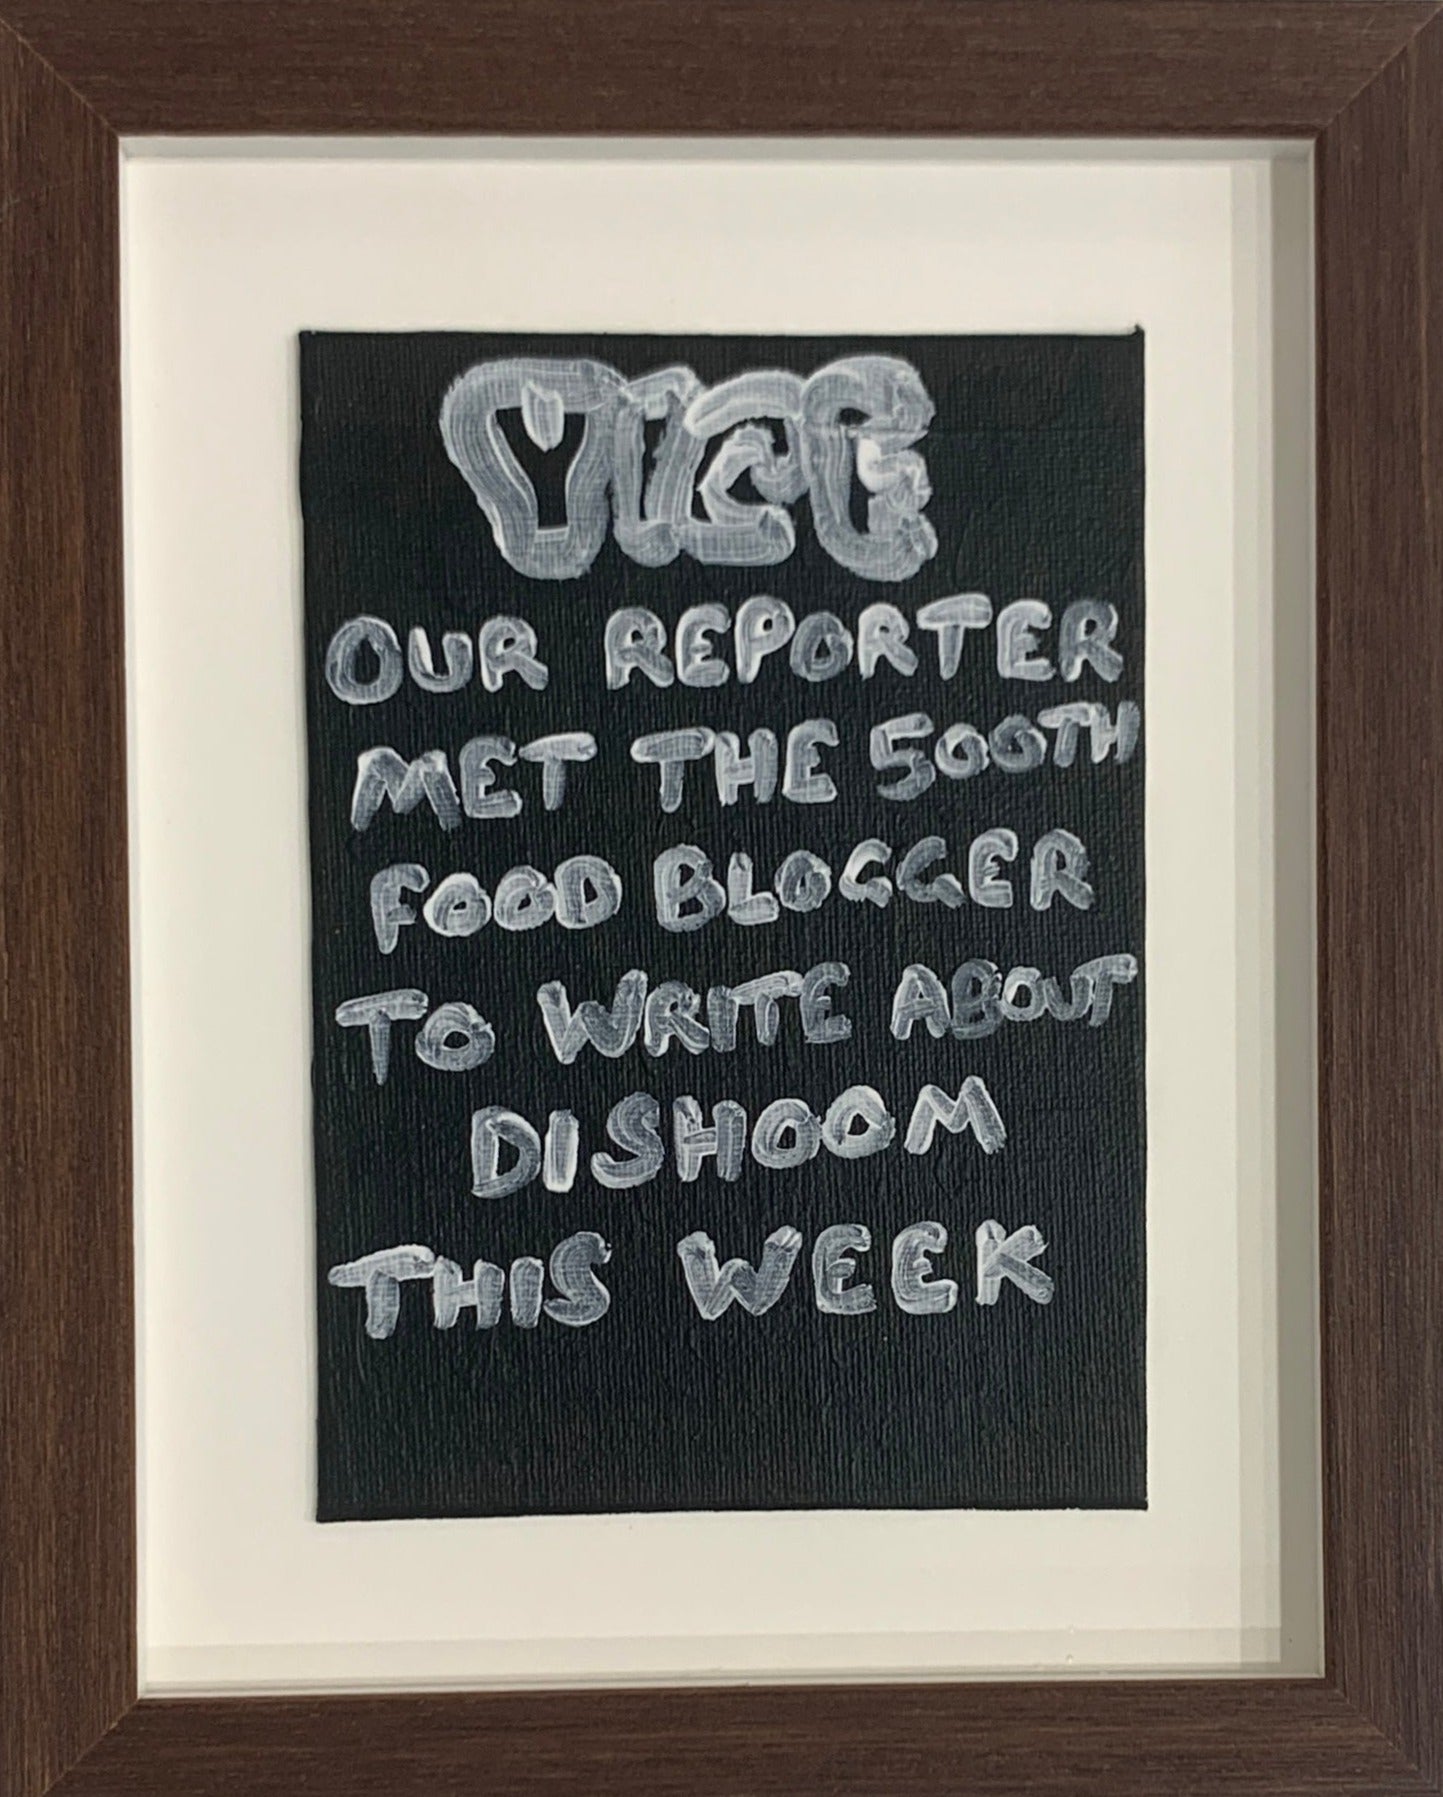 VICE
OUR REPORTER
MET THE 500TH
FOOD BLOGGER
TO WRITE ABOUT
DISHOOM
THIS WEEK